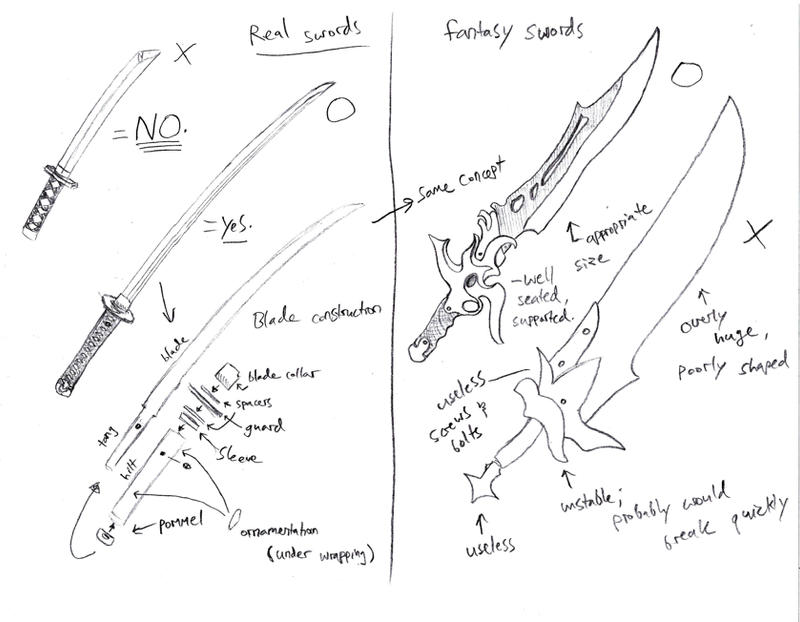 Real swords
X
= NO.
O
= yes.
Blade construction
blade
blade collar
spacers
guard
sleeve
tang
hilt
pommel
ornamentation
(under wrapping)
fantasy swords
O
Same concept
appropriate
size
-well
seated,
supported.
X
overly
huge,
poorly shaped
useless
screws &
bolts
unstable;
probably would
break quickly
useless